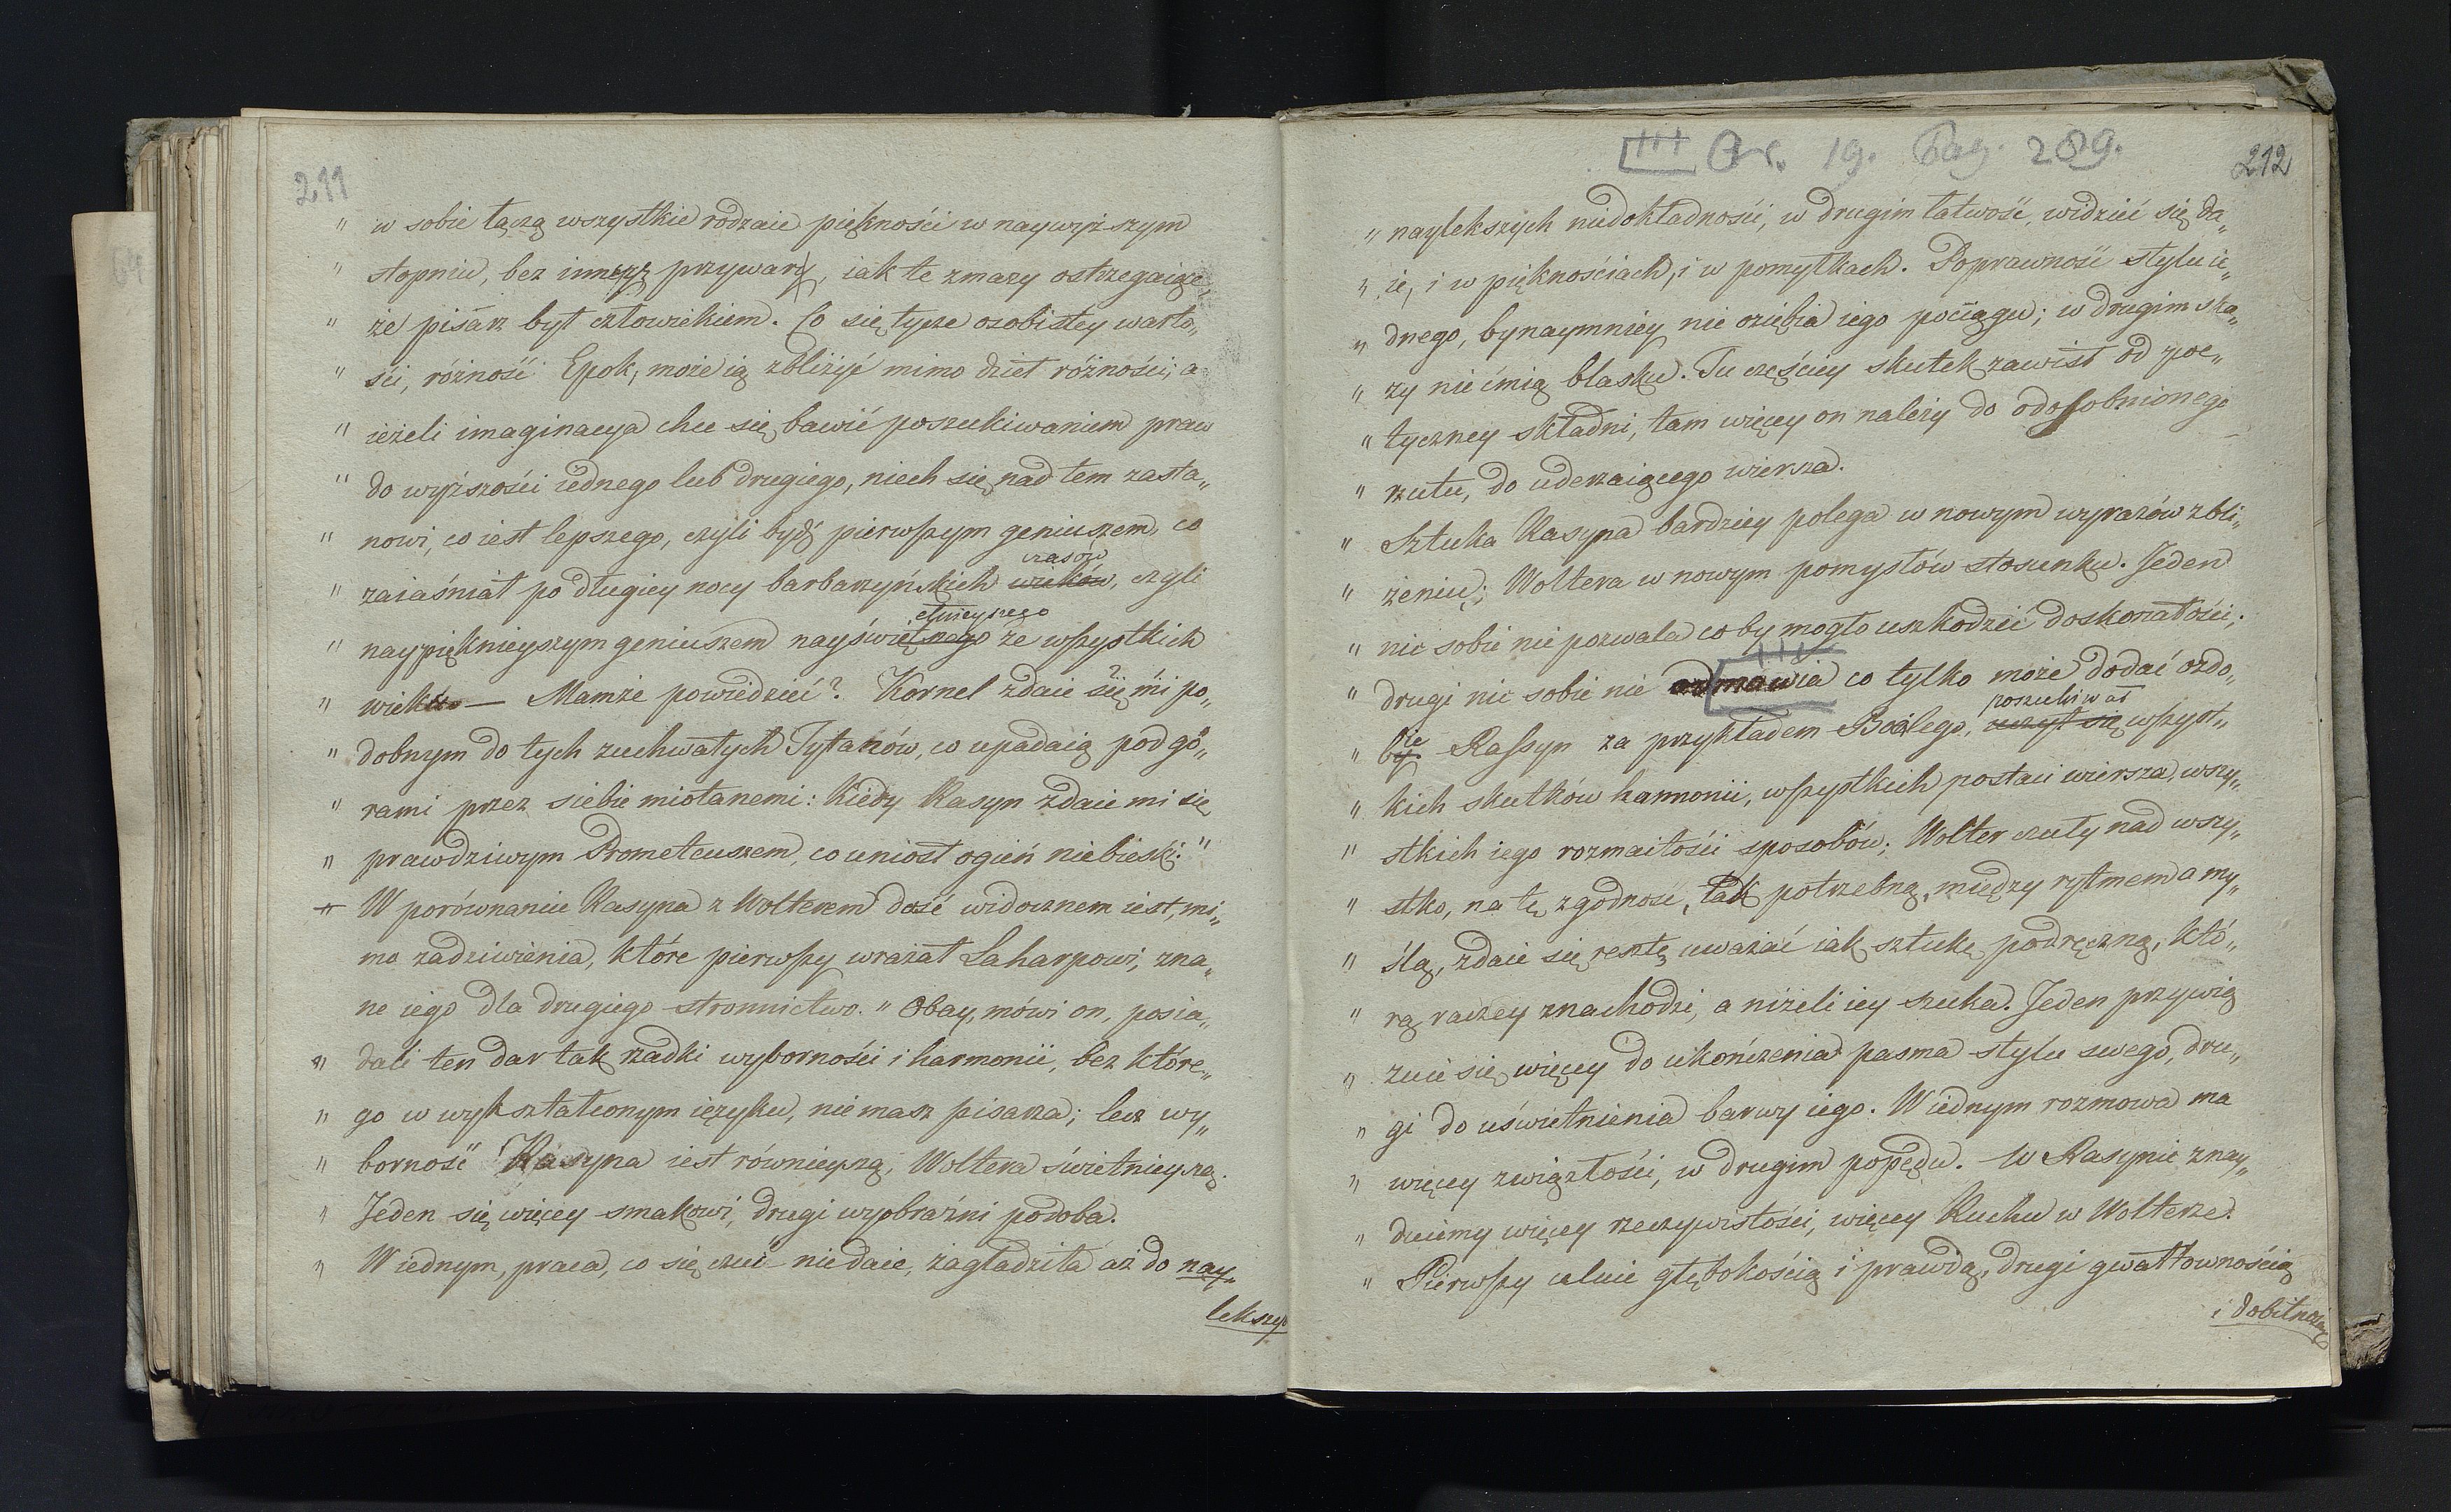 211
" w sobie łączą wszystkie rodzaie piękności w naywyższym
" stopniu, bez innezy przywary, iak te zmazy ostrzegaiące,
" że pisarz był człowiekiem. Co się tycze osobistey warto„
" ści, różność Epok, może ią zbliżyć mimo dzieł różności; a
" ieżeli imaginacya chce się bawić poszukiwaniem praw
" do wyższości iednego lub drugiego, niech się nad tem zasta„
" nowi, co iest lepszego, czyli bydź pierwszym geniuszem, co
czasów
" zaiaśniał po długiey nocy barbarzyńskich wieków, czyli
etnieyszego
" naypięknieyszym geniuszem nayświętnego ze wszystkich
" wieku — Mamże powiedzieć? Kornel zdaie się mi po„
" dobnym do tych zuchwałych Tytanów, co upadaią pod gó„
" rami przez siebie miotanemi: kiedy Rasyn zdaie mi się
" prawdziwym Prometeuszem, co uniosł ogień niebieski."
" W porównaniu Rasyna z Wolterem dość widocznem iest, mi„
mo zadziwienia, które pierwszy wrażał Laharpowi, zna„
ne iego dla drugiego stronnictwo. " Obay, mówi on, posia„
" dali ten dar tak rzadki wyborności i harmonii, bez które„
" go w wykształconym ięzyku, nie masz pisarza; lecz wy„
" borność Rasyna iest równieyszą, Woltera świetnieyszą.
" Jeden się więcey smakowi, drugi wyobraźni podoba.
" W iednym, praca, co się czuć nie daie, zagładziła aż do nay„
lekszych
III Ar. 19. Pag. 289.
212
" naylekszych niedokładności, w drugim łatwość, widzieć się da„
" ie, i w pięknościach, i w pomyłkach. Poprawność stylu ie„
" dnego, bynaymniey nie oziębia iego pociągu; w drugim ska„
" zy nie ćmią blasku. Tu częściey skutek zawisł od poe„
" tyczney składni, tam więcey on należy do odosobnionego
" rzutu, do uderzaiącego wiersza.
" Sztuka Rasyna bardziey polega w nowym wyrazów zbli„
" żeniu; Woltera w nowym pomysłów stosunku. Jeden
" nic sobie nie pozwala coby mogło uszkodzić doskonałości;
" drugi nic sobie nie odmawia co tylko może dodać ozdo„
ie poszukiwał
" by. Rassyn za przykładem Boalego, uczył się wszyst„
" kich skutków harmonii, wszystkich postaci wiersza, wszy„
" stkich iego rozmaitości sposobów; Wolter czuły nad wszy„
" stko, na tę zgodność, tak potrzebną, między rytmem a my„
" ślą, zdaie się resztę uważać iak sztukę podręczną, któ„
" rą raczey znachodzi, a niżeli iey szuka. Jeden przywią
" zuie się więcey do ukończenia pasma stylu swego, dru„
" gi do uświetnienia barwy iego. W iednym rozmowa ma
" więcey zwięzłości, w drugim popędu. W Rasynie znay„
" duiemy więcey rzeczywistości, więcey Ruchu w Wolterze.
" Pierwszy celuie głębokością i prawdą, drugi gwałtownością
i dobitnością